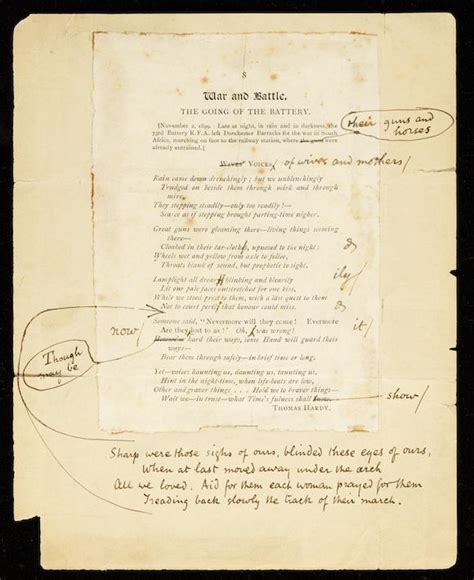 8
War and Battle.
THE GOING OF THE BATTERY.
[November 2, 1899. Late at night, in rain and in darkness, the
73rd Battery R.F.A. left Dorchester Barracks for the war in South
Africa, marching on foot to the railway station, where the guns were
already entrained.]
their guns and
horses
Wives' VOICES,
of wives and mothers/
Rain came down drenchingly; but we unblenchingly
Trudged on beside them through mirk and through
mire,
They stepping steadily—only too readily!—
Scarce as if stepping brought parting-time nigher.
Great guns were gleaming there—living things seeming
there—
Cloaked in their tar-cloths, upnosed to the night:
Wheels wet and yellow from axle to felloe,
Throats blank of sound, but prophetic to sight.
Lamplight all drear blinking and blearily
ily/
Lit our pale faces outstretched for one kiss,
While we stood prest to them, with a last quest to them
Not to court peril that honour could miss.
Someone said, "Nevermore will they come! Evermore
now/
Are they lost to us!" Oh, was wrong!
it/
Though
may be
hard their ways, some Hand will guard their
ways—
Bear them through safely—in brief time or long.
Yet—voices haunting us, daunting us, taunting us,
Hint in the night-time, when life-beats are low,
Other and graver things . . . Hold we to braver things—
Wait we—in trust—what Time's fulness shall
show/
THOMAS HARDY.
Sharp were those sighs of ours, blinded these eyes of ours,
When at last moved away under the arch
All we loved. Aid for them each woman prayed for them
Treading back slowly the track of their march.